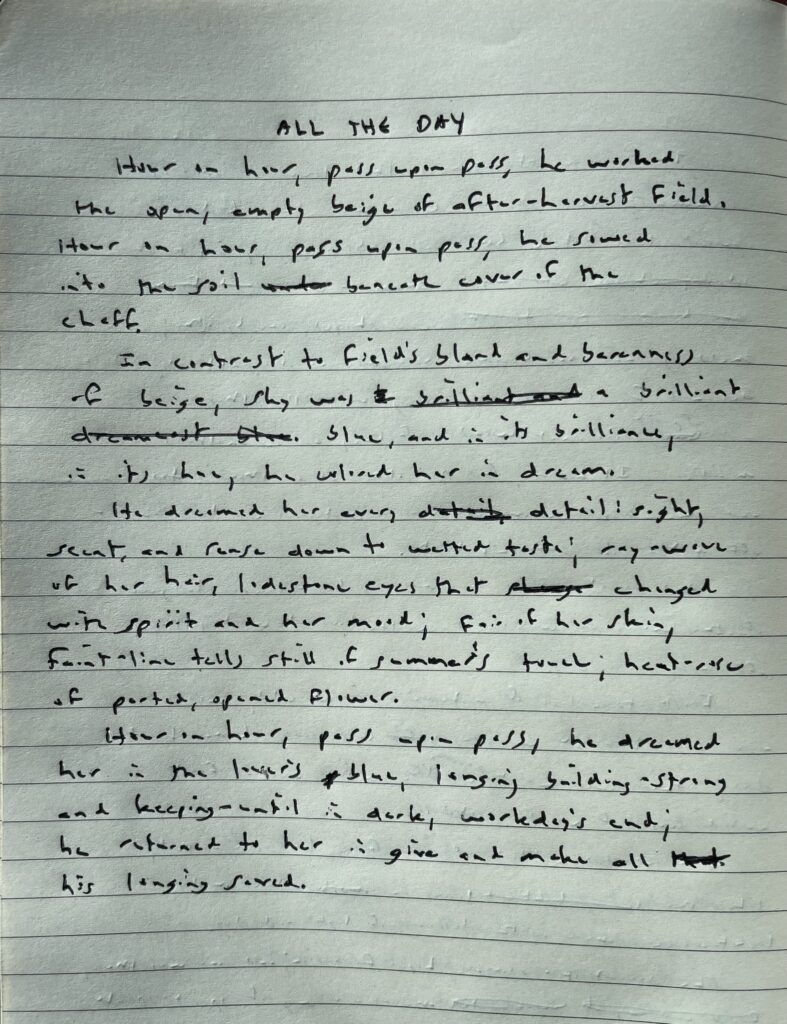 ALL THE DAY
Hour on hour, pass upon pass, he worked
the open, empty beige of after-harvest field.
Hour on hour, pass upon pass, he sowed
into the soil beneath cover of the
chaff.
In contrast to field's bland and barenness
of beige, sky was a brilliant
blue, and in its brilliance,
in its hue, he colored her in dream.
He dreamed her every detail: sight,
scent, and sense down to wetted taste; ray-wove
of her hair, lodestone eyes that changed
with spirit and her mood; fair of her skin,
faint-line tells still of summer's touch; heat-rose
of parted, opened flower.
Hour on hour, pass upon pass, he dreamed
her in the lover's blue, longing building-strong
and keeping-until in dark, workday's end;
he returned to her in give and make all
his longing saved.